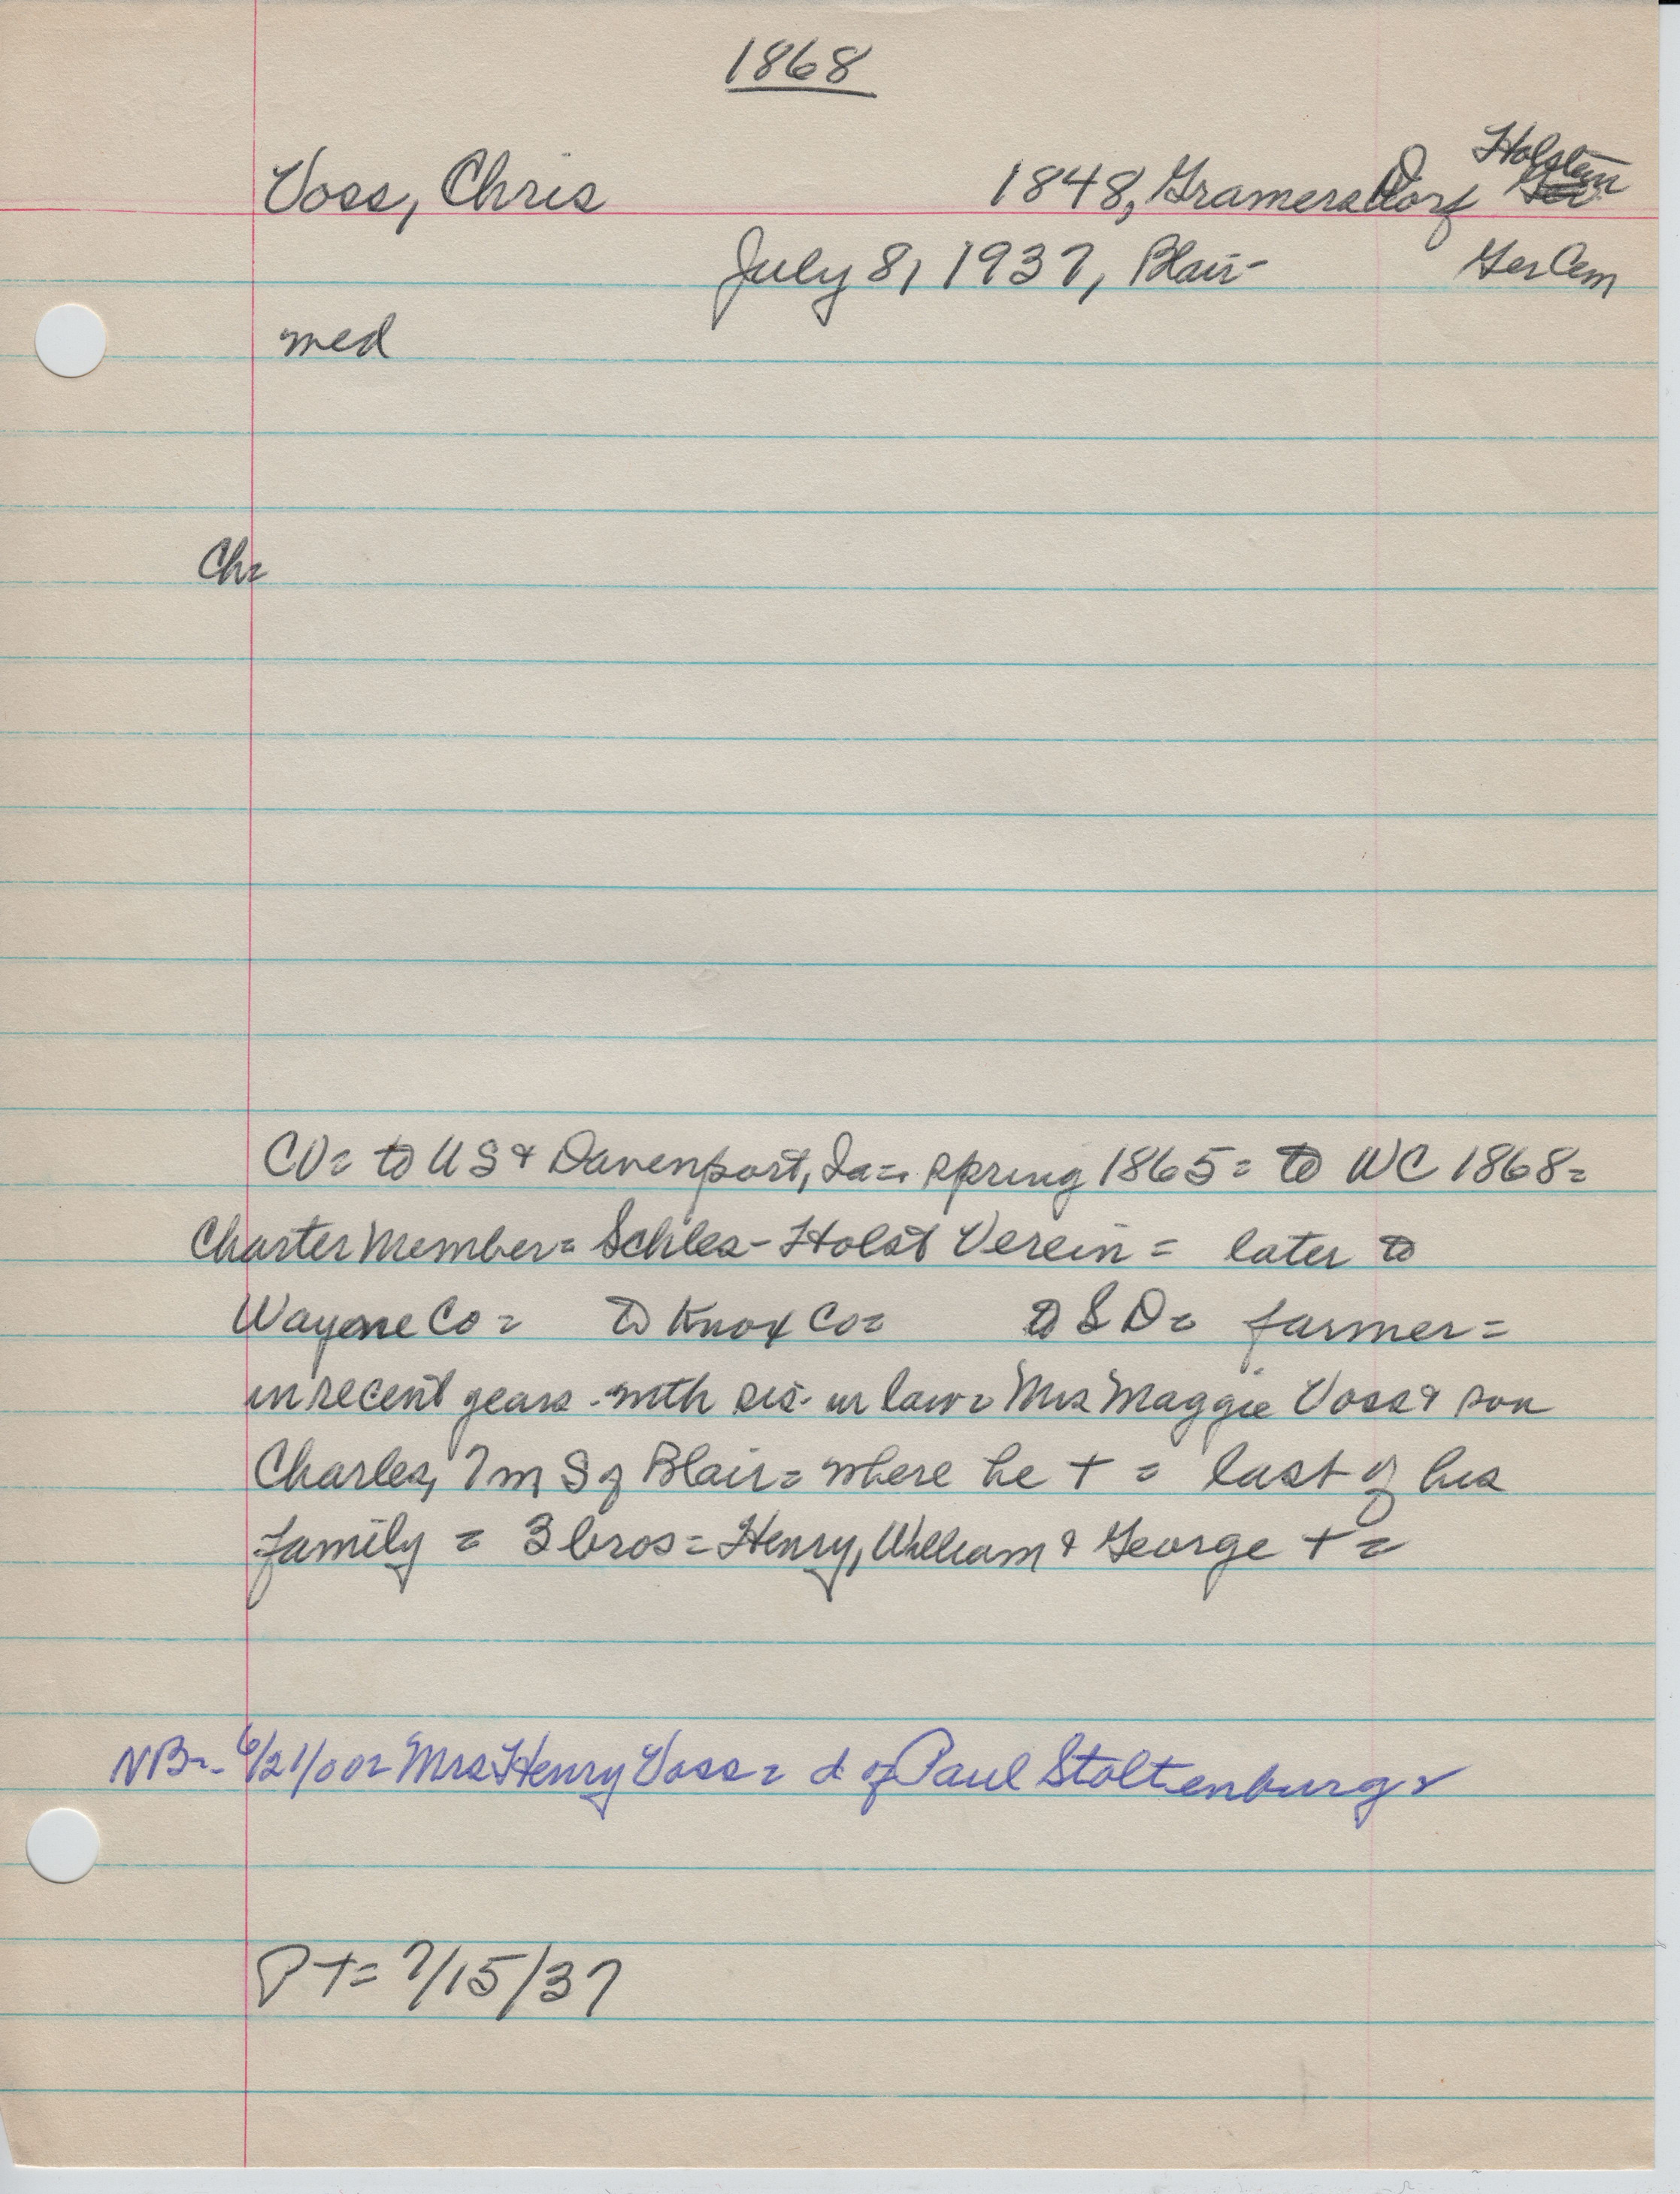 1868
Voss, Chris 1848, Gramersdorf Holstein
July 8, 1937, Blair- Ger Cem
med
Ch=
CV= to US & Davenport, Ia=, spring 1865= to WC 1868=
Charter Member= Schles-Holst Verein= later to
Wayne Co= to Knox Co= to S D= farmer=
in recent years with sis-in law= Mrs Maggie Voss & son
Charles, 7m S of Blair= where he + = last of his
family = 3 bros= Henry, William & George + =
NB-. 6/21/00= Mrs Henry Voss= d of Paul Stoltenburg=
PT= 7/15/37